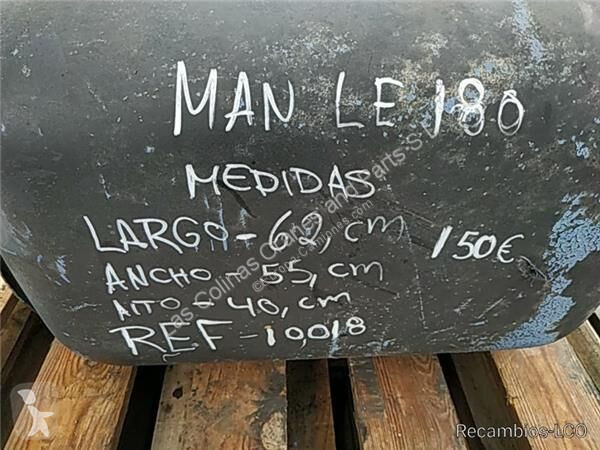 MAN LE 180
MEDIDAS
LARGO - 62, cm
150€
ANCHO - 55, cm
AITO - 40, cm
REF - 10,018
Las Colinas Cranes and Parts S.L.
Recambios-LCO